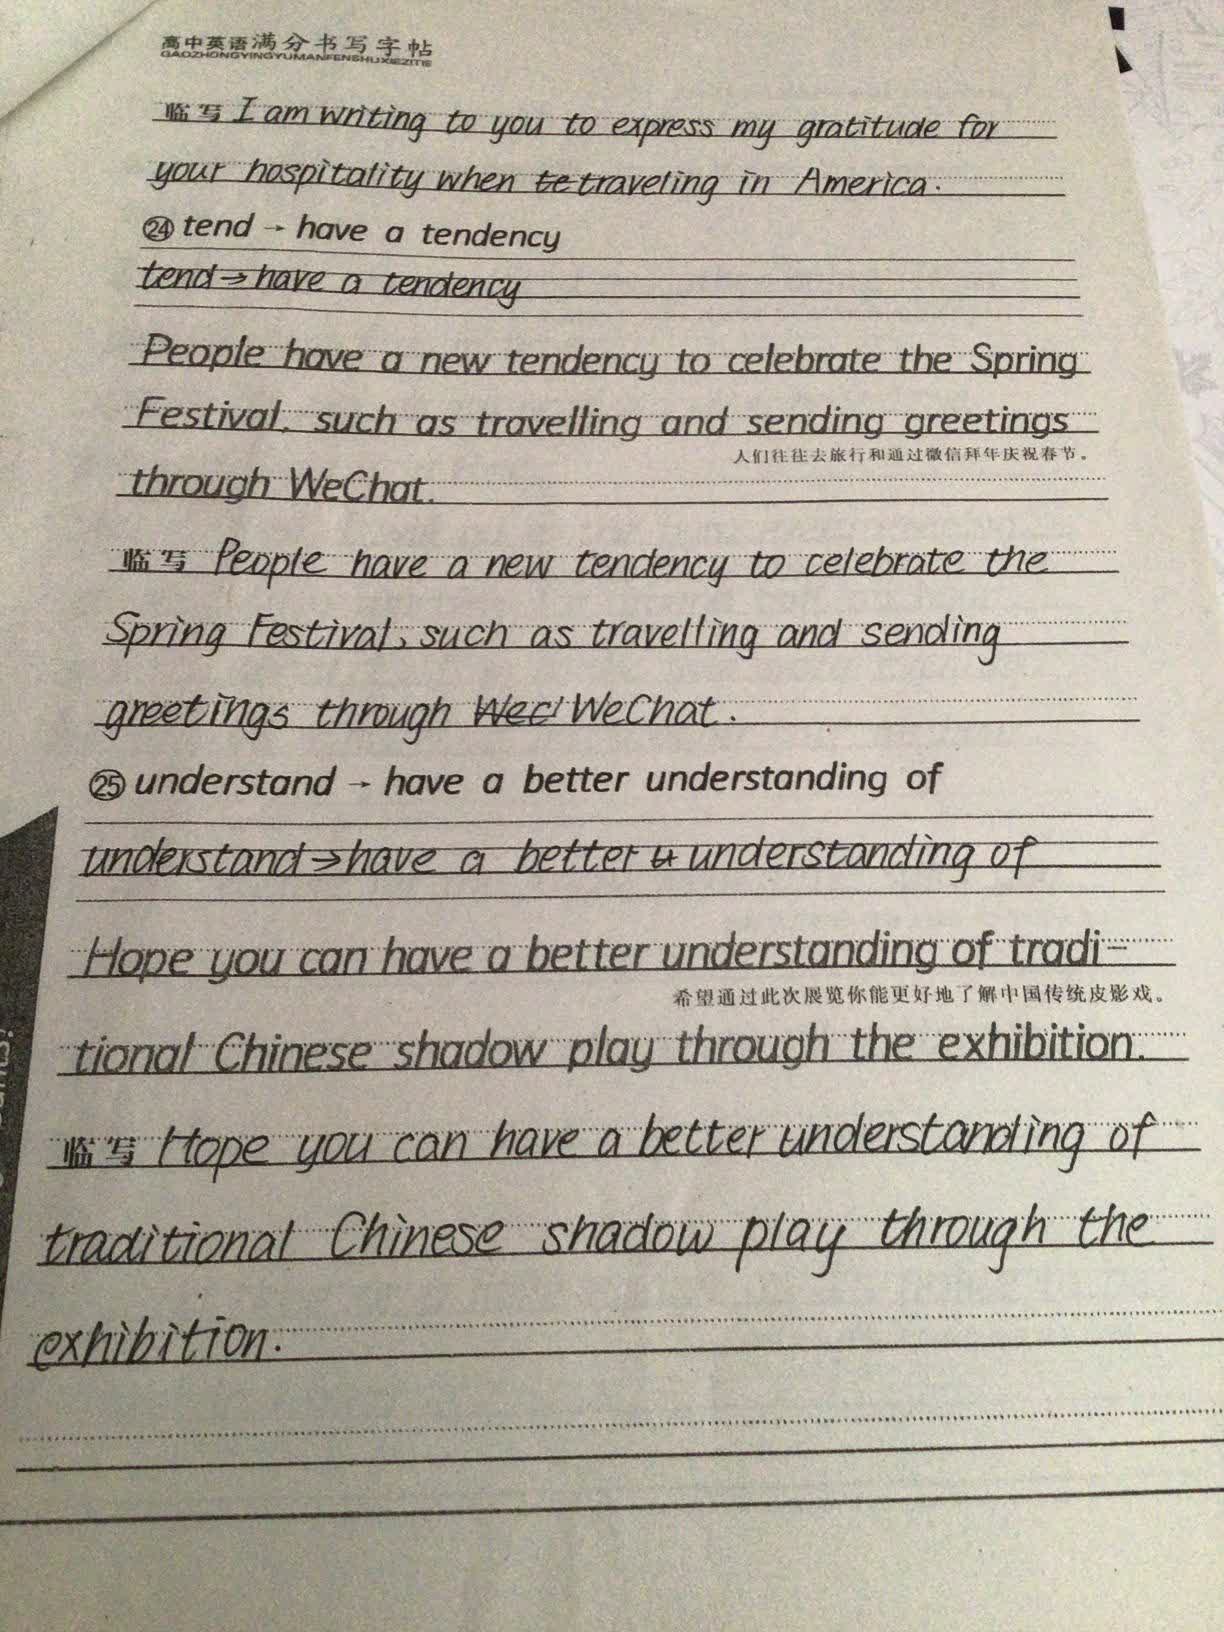 高中英语满分书写字帖
GAOZHONGYINGYUMANFENSHUXIEZITIE
临写 I am writing to you to express my gratitude for
your hospitality when te traveling in America.
㉔ tend → have a tendency
tend → have a tendency
People have a new tendency to celebrate the Spring
Festival, such as travelling and sending greetings
人们往往去旅行和通过微信拜年庆祝春节。
through WeChat.
临写 People have a new tendency to celebrate the
Spring Festival, such as travelling and sending
greetings through Wec WeChat.
㉕ understand → have a better understanding of
understand → have a better u understanding of
Hope you can have a better understanding of tradi-
希望通过此次展览你能更好地了解中国传统皮影戏。
tional Chinese shadow play through the exhibition.
临写 Hope you can have a better understanding of
traditional Chinese shadow play through the
exhibition.